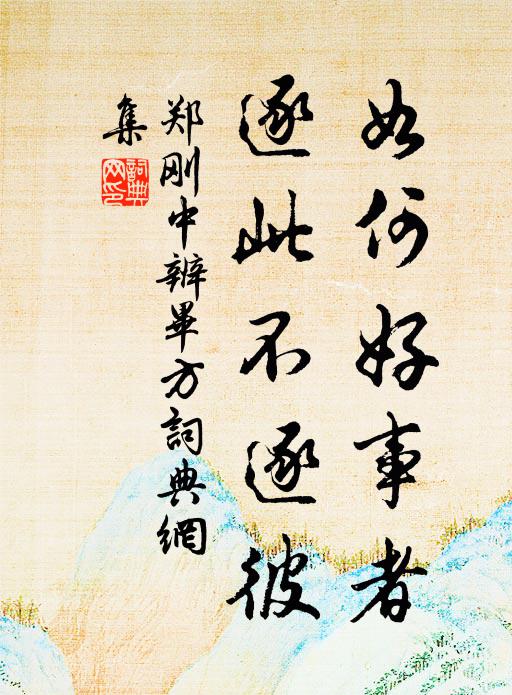 如何好事者
逐此不逐彼
郑刚中辨畢方詞典網
集
詞典
网印